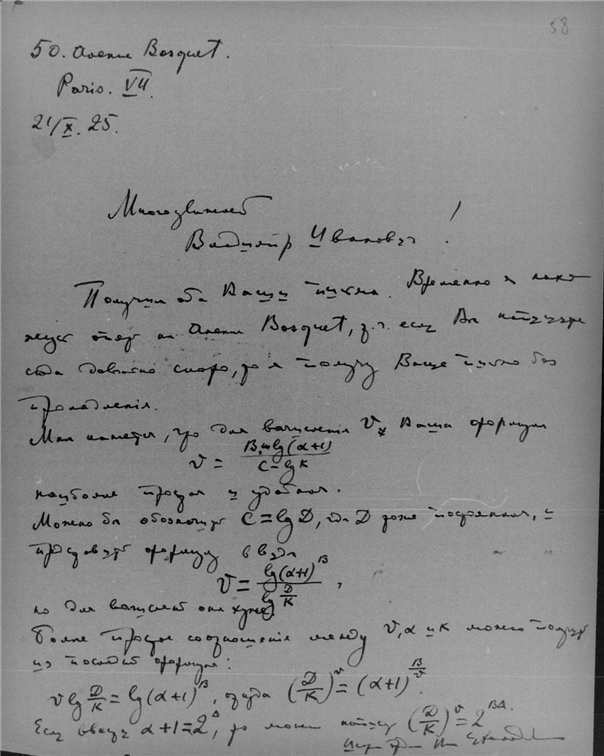 58
50. Avenue Bosquet.
Paris. VII
21/X. 25.
Многоуважаемый !
Владимир Иванович
Получил оба Ваши письма. Временно я
опять на Avenue Bosquet, т.ч. если Вы напишете
сюда довольно скоро, то я получу Ваше письмо без
промедления.
Мне кажется, что для вычисления V Ваша формула
v = B lg(α+1) / C - lg K
наиболее простая и удобная.
Можно бы обозначить C = lg D, где D тоже постоянная, и
представить формулу в виде
V = lg(α+1)^B / lg D/K ,
но для вычислений она хуже.
Более простое соотношение между V, α и K можно получить
из последней формулы:
v lg D/K = lg(α+1)^B, откуда (D/K)^v = (α+1)^B
Если ввести α+1 = 2^Δ, то можно (D/K)^v = 2^BΔ.